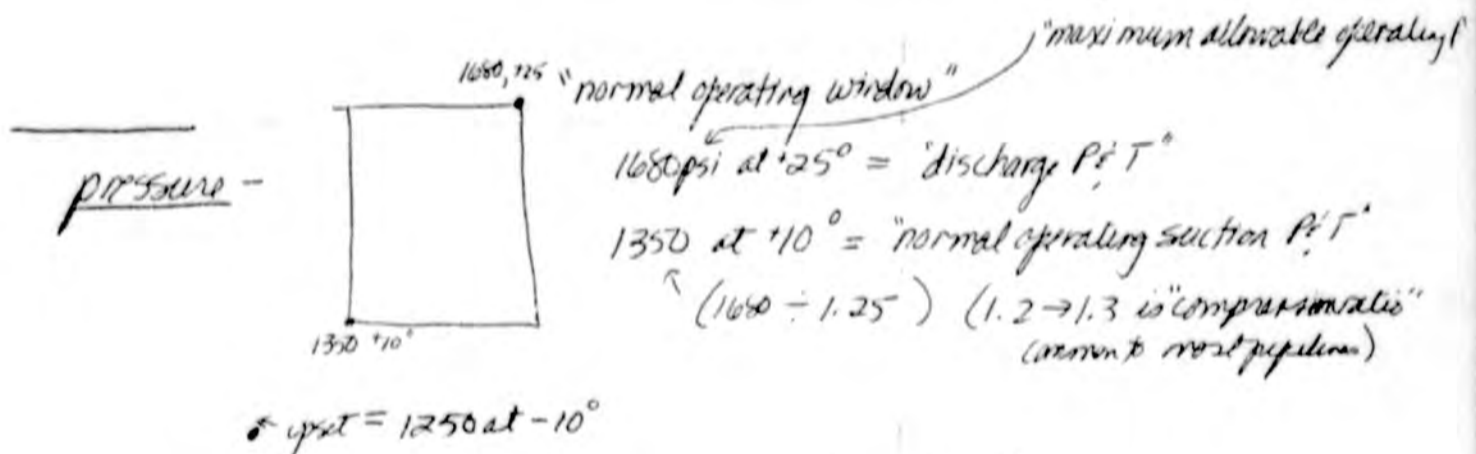 "maximum allowable operating P
1680, +25 "normal operating window"
pressure -
1680 psi at +25° = "discharge P & T"
1350 at +10° = "normal operating suction P & T"
(1680 ÷ 1.25) (1.2 → 1.3 is "compression ratio"
(common to most pipelines)
1350 +10°
upset = 1250 at -10°